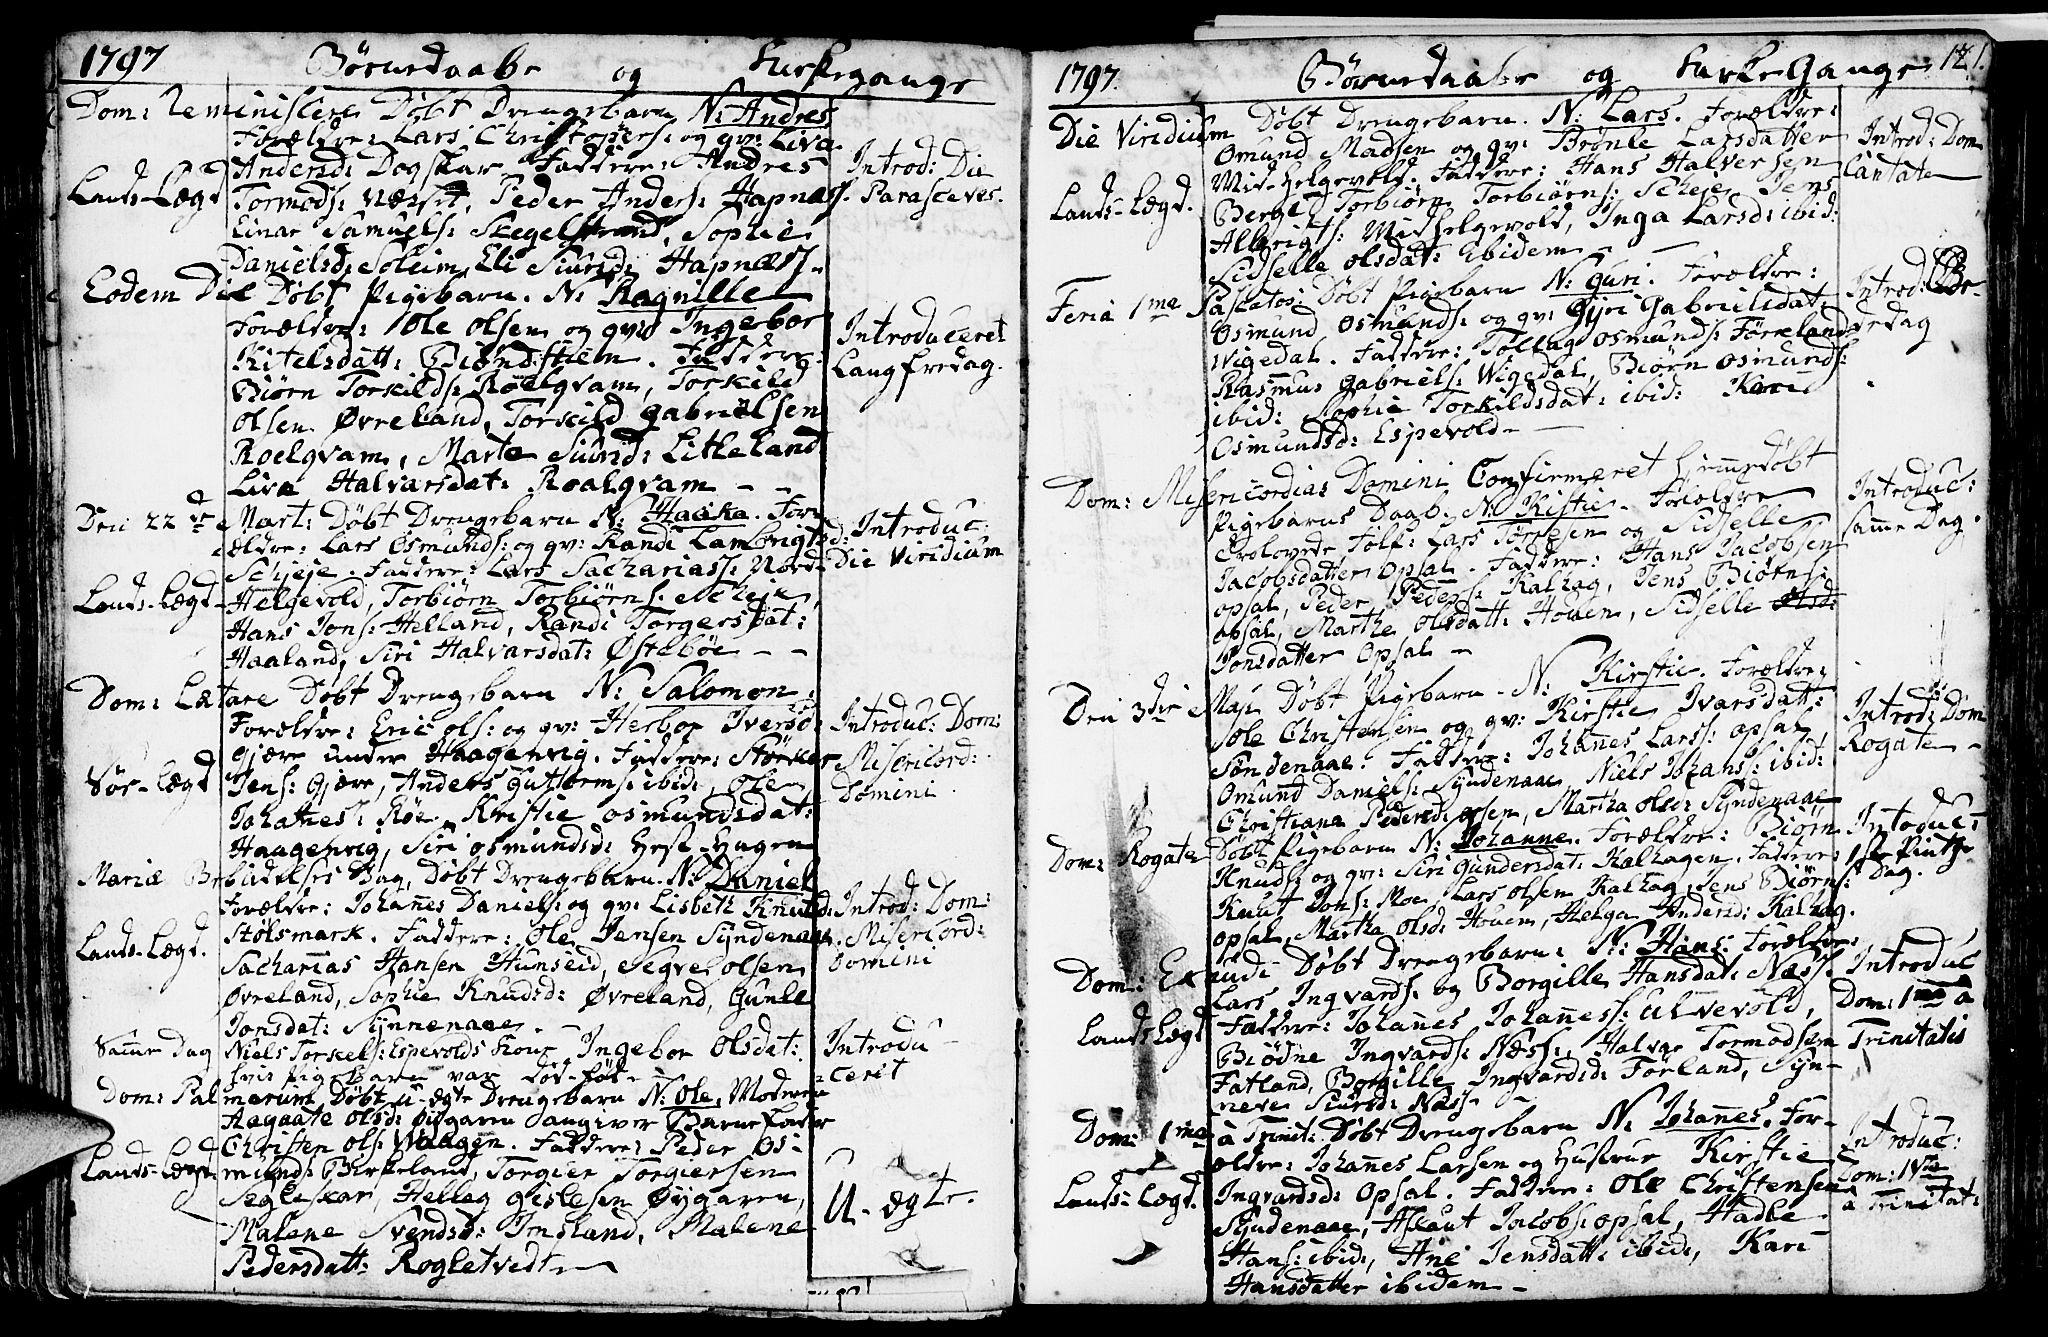 1797 Børnedaabe og Kirkegange
Dom: Reminiscere Døbt Drengebarn N: Andres
Forældre: Lars Christophers: og gv: Liva
Andersd: Dogskar Faddere: Andres
Lands-Lægd Tormods: Næsse, Peder Anders: Hapnæs.
Einar Samuels: Skegelstrand, Sophie
Danielsd: Soleim, Eli Siursd: Hapnæss.
Introd: Die
Parasceves.
Eodem Die Døbt Pigebarn. N: Ragnille
Forældre: Ole Olsen og gv: Ingebor
Kitelsdatt: Biøndstien. Faddere:
Biørn Torkilds: Roelqvam, Torkild
Olsen Øvreland, Torkild Gabrielsen
Roelqvam, Marte Siursd: Litleland
Liva Halvarsdat: Roalqvam - -
Introduceret
Langfredag.
Den 22de Mart: Døbt Drengebarn N: Haaka. For-
ældre: Lars Osmunds: og gv: Randi Lambrigtsd:
Scheje. Faddere: Lars Sachariass: Nord-
Lands-Lægd- Helgevold, Torbiørn Torbiørns: Scheie,
Hans Jons: Helland, Randi Torgersdat:
Haaland, Siri Halvarsdat: Østebøe - -
Introduc:
Die Viridium
Dom: Lætare Døbt Drengebarn N: Salomon:
Forældre: Eric Ols: og gv: Herbor Iversd:
Gjære under Haagenvig. Faddere: Størker
Sør-Lægd Jens: Gjære, Anders Guttorms: ibid:, Ole
Johannes: Røe, Kristie Osmundsdat:
Haagenvig, Siri Osmundsd: Hest-Hagen
Introduc: Dom:
Misericord:
Domini.
Mariæ Bebudelses Dag, Døbt Drengebarn. N: Daniel
Forældre: Johañes Daniels: og gv: Lisbeth Knutsd:
Stølsmark. Faddere: Ole Jensen Syndenaae,
Lands-Lægd. Sacharias Hansen Hunseid, Segve Olsen
Øvreland, Sophie Knudsd: Øvreland, Gunle
Jonsdat: Synnenaae. -
Introd: Dom:
Misericord:
Domini
Samme Dag Niels Torkels: Espevolds Kone Ingebor Olsdat:
hvis Pigebarn var død-fød -
Introdu-
ceret
Dom: Palmarum Døbt U-ægte Drengebarn N: Ole, Moderen
Aagaate Olsd: Øygaren angiver Barnefader
Christen Ols: Waagen. Faddere: Peder Os-
Lands-Lægd: munds: Birkeland, Torgier Torgiersen
Segleskar, Helleg Gislesen Øygaren,
Malene Svendsd: Imsland, Malene
Pedersdatt: Rogletvedt
U-ægte.
1797. Børnedaabe og Kirke Gange 121.
Die Viridium Døbt Drengebarn. N: Lars. Forældre:
Omund Madsen og gv: Brønle Larsdatter
Mid-Helgevold. Faddere: Hans Halversen
Lands-Lægd. Berge, Torbiørn Torbiørns: Scheje, Jens
Albrigts: Midhelgevold, Inga Larsd: ibid:
Sidselle Olsdat: Ibidem -
Introd: Dom
Cantate
Feria 1ma Pascatos: Døbt Pigebarn N: Guri. Forældre:
Osmund Osmunds: og gv: Gyri Gabrielsdat:
Wigedal. Faddere: Tollag Osmunds: Førreland
Rasmus Gabriels: Wigedal, Biørn Osmunds:
ibid: Sophie Torkildsdat: ibid: Kari
Osmundsd: Espevold -
Introd:
dedag
Dom: Misericordias Domini Confirmeret Hjemedøbt
Pigebarns Daab. N: Kistie. Forældre
Trolovede Folk: Lars Torresen og Sidselle
Jacobsdatter Opsal. Faddere: Hans Jacobsen
Opsal, Peder Peders: Kalhag, Jens Biørns:
Opsal, Marthe Olsdatt: Houen, Sidselle Olsd:
Jonsdatter Opsal -
Introduc:
samme Dag.
Den 3die Maji Døbt Pigebarn - N: Kirstie. Forældre:
Sole Christensen og gv: Kirstie Ivarsdatt:
Søndenaae. Faddere: Johañes Larss: Opsal
Omund Daniels: Syndenaae, Niels Johans: ibid:
Christiana Pedersd: Opsen, Martha Olsd: Syndenaae
Introd: Dom
Rogate -
Dom: Rogate Døbt Pigebarn N: Johanne. Forældre: Biørn
Knuds: og gv: Siri Gundersdat: Kalhagen. Faddere:
Knut Jons: Moe, Lars Olsen Kalhag, Jens Biørns:
Opsal, Martha Olsd: Houen, Helga Andersd: Kalhag.
Introduc:
1ste Pintze
Dag.
Dom: Exaudi Døbt Drengebarn: N: Hans. Forældre:
Lars Ingvards: og Borgille Hansdat: Næss.
Lands Lægd Faddere: Johañes Johañess: Ulvevold,
Biødne Ingvards: Næss, Halvar Tormodsen
Fatland, Borgille Ingvardsd: Førland, Syn-
neve Siursd: Næss -
Introduc
Dom: 1ma à
Trinitatis
Dom: 1ma à Trinit: Døbt Drengebarn N: Johañes. For-
ældre: Johañes Larsen og Hustrue Kirstie
Lands-Lægd. Ingvardsd: Opsal. Faddere: Ole Christensen
Syndenaae, Aslaut Jacobs: Opsal, Hadle
Hans: ibid:, Ane Jensdatt: ibid:, Kari
Hansdatter ibidem -
Introduc:
Dom: IVta
à Trinitat: